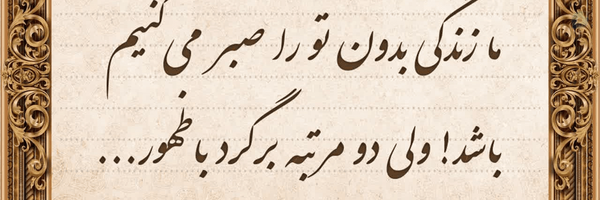 ما زندگی بدون تو را صبر می‌کنیم
باشد! ولی دو مرتبه برگرد با ظهور...